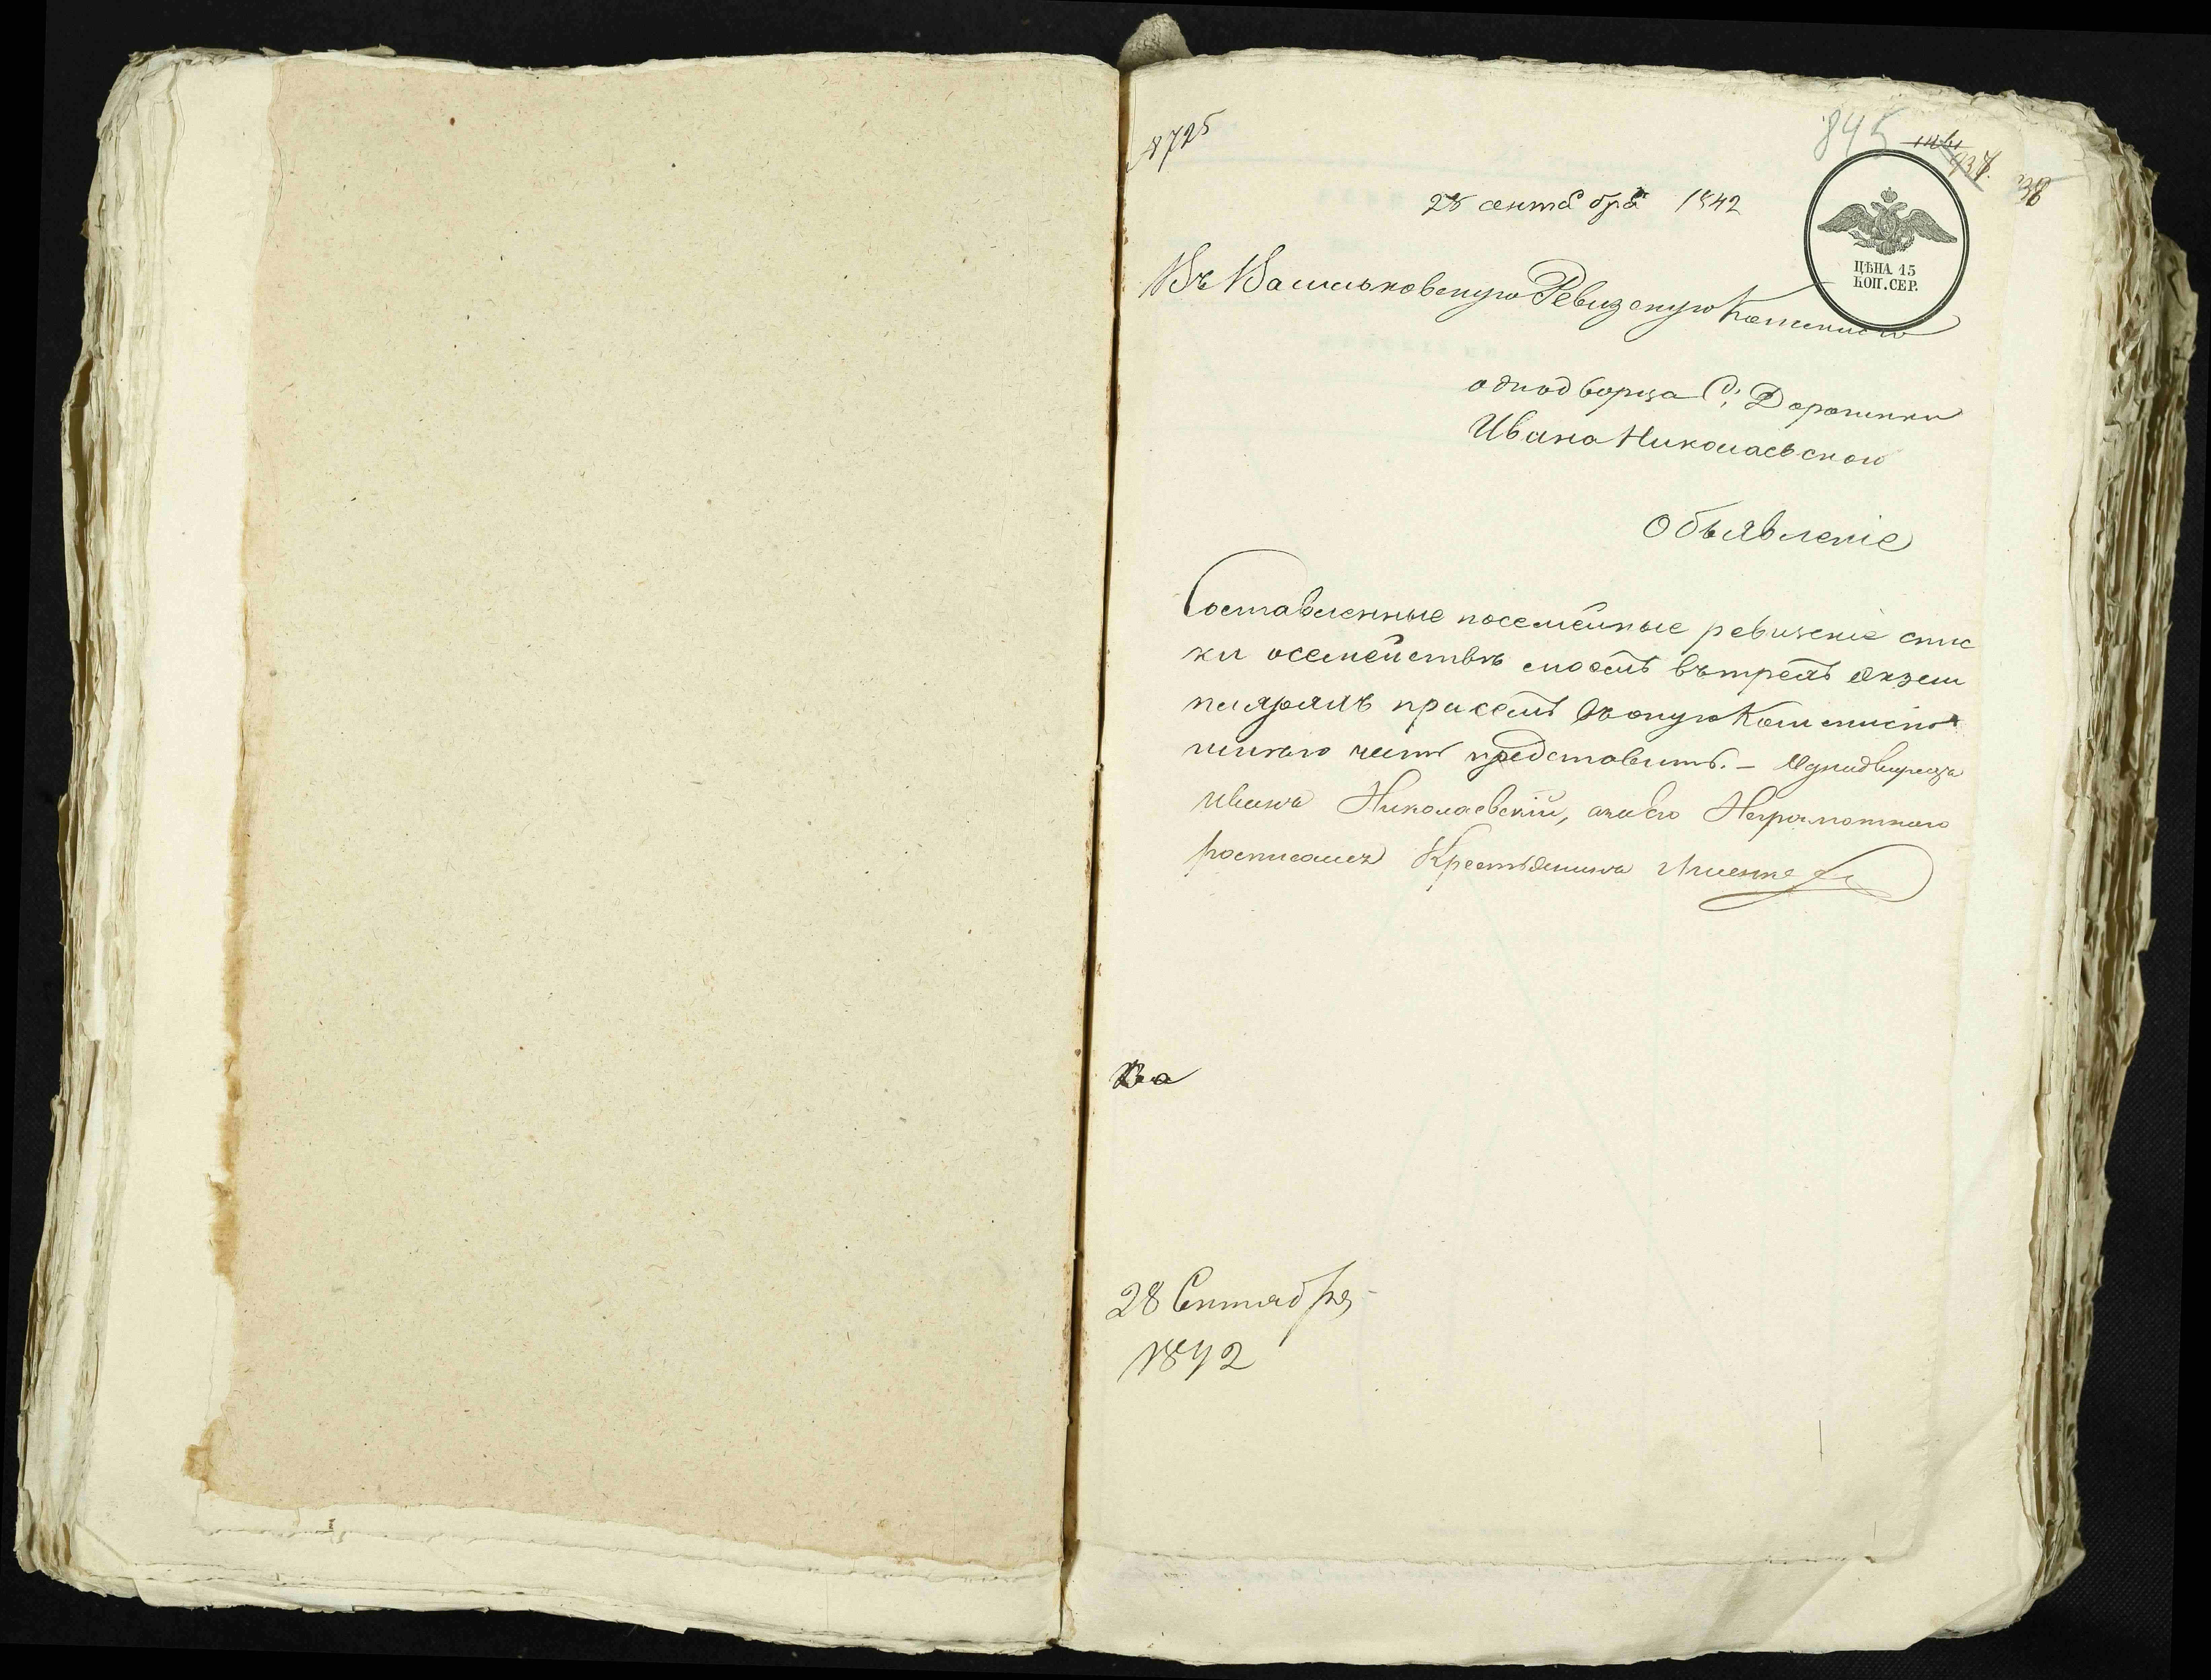 8725
845
937
28 сентября 1842
ЦѢНА 15
КОП. СЕР.
Въ Васильковскую Ревизскую Коммисію
однодворца С. Дорогинки
Ивана Николаевскаго
Объявленіе
Составленные посемейные ревизскіе спис
ки осемействѣ моемъ вътрехъ екзем
плярахъ присемъ въоную Коммисію
имѣю честь представить. – Однодворецъ
Иванъ Николаевскій, азаего Неграмотнаго
росписался Крестьянинъ
28 Сентября
1842